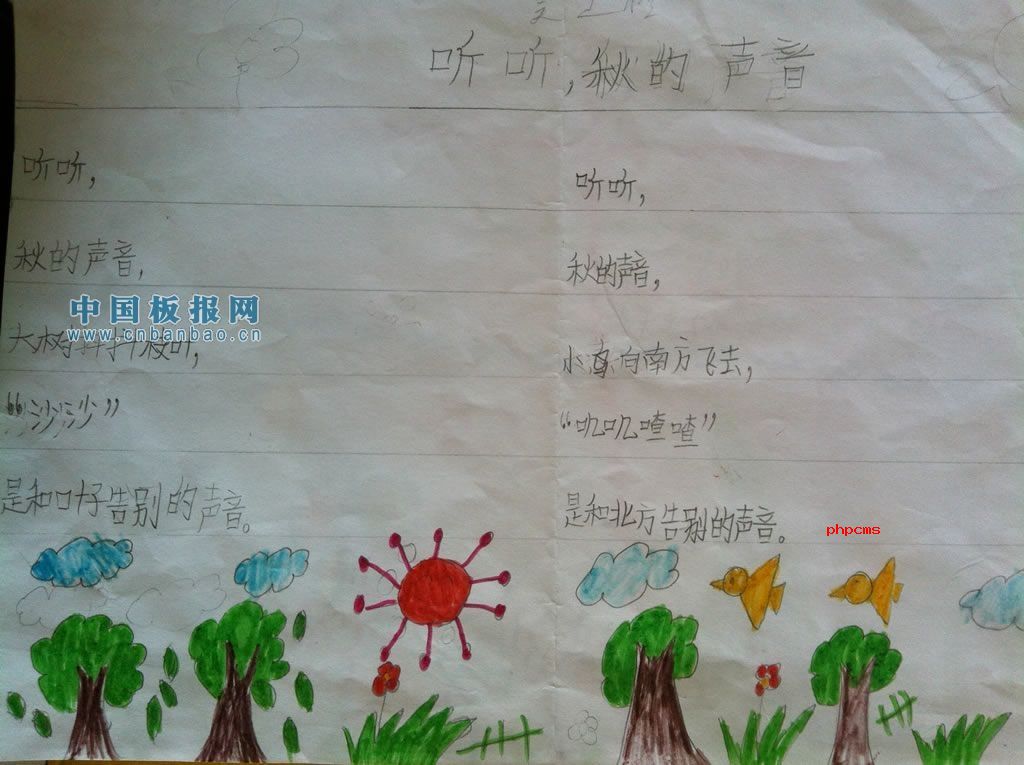 听听,秋的声音
听听,
秋的声音,
中国板报网
www.cnbanbao.cn
大树抖抖枝叶,
“沙沙”
是和叶子告别的声音。
听听,
秋的声音,
小 向南方飞去,
“叽叽喳喳”
是和北方告别的声音。
phpcms